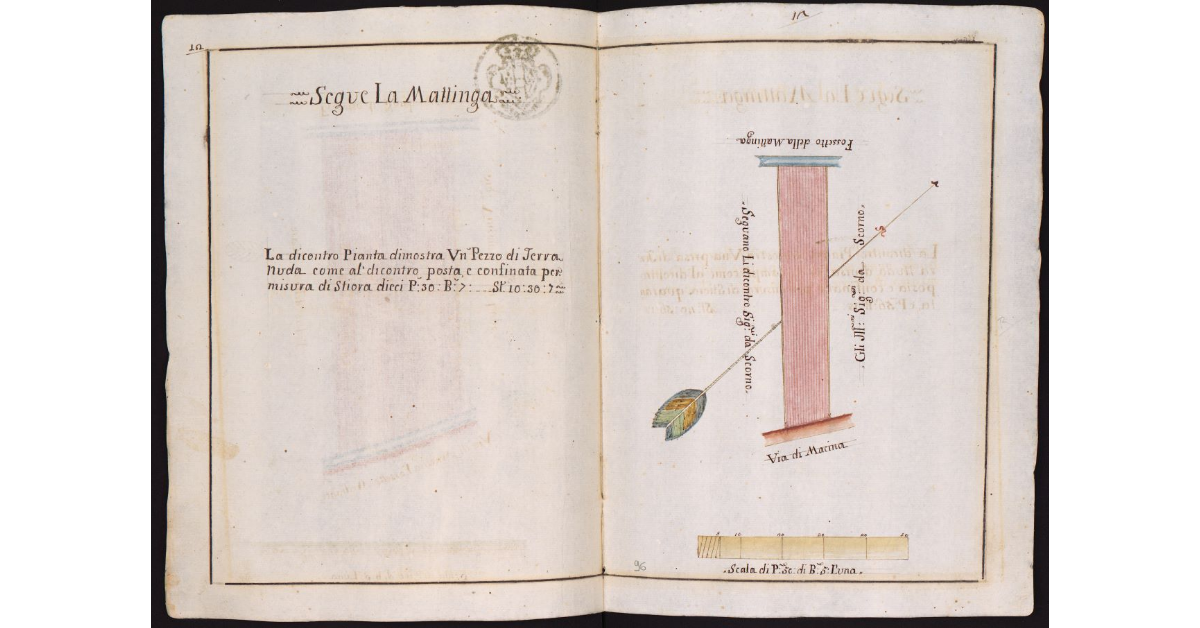 Segue La Mattinga
La dicontro Pianta dimostra Vn Pezzo di Terra
nuda come al dicontro posta, e confinata per
misura di Stiora dieci P: 30: B: 7: St: 10:30:7
VI
Fossetto della Mattinga
Seguano Li dicontro Sig:ri da Scorno.
Gli Ill:mi Sig:ri da Scorno.
Via di Macina
10
Scala di P: 50: di B: 5: l'una.
96